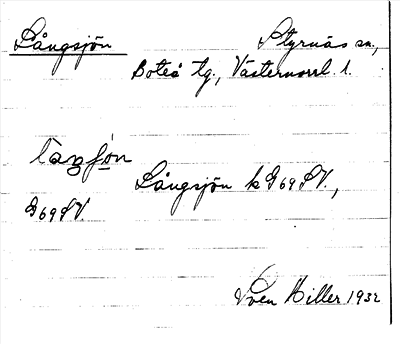 Långsjön Styrnäs sn.,
Boteå tg., Västernorrl. l.
Långsjön k G69SV.,
G69SV.
Sven Hiller 1932